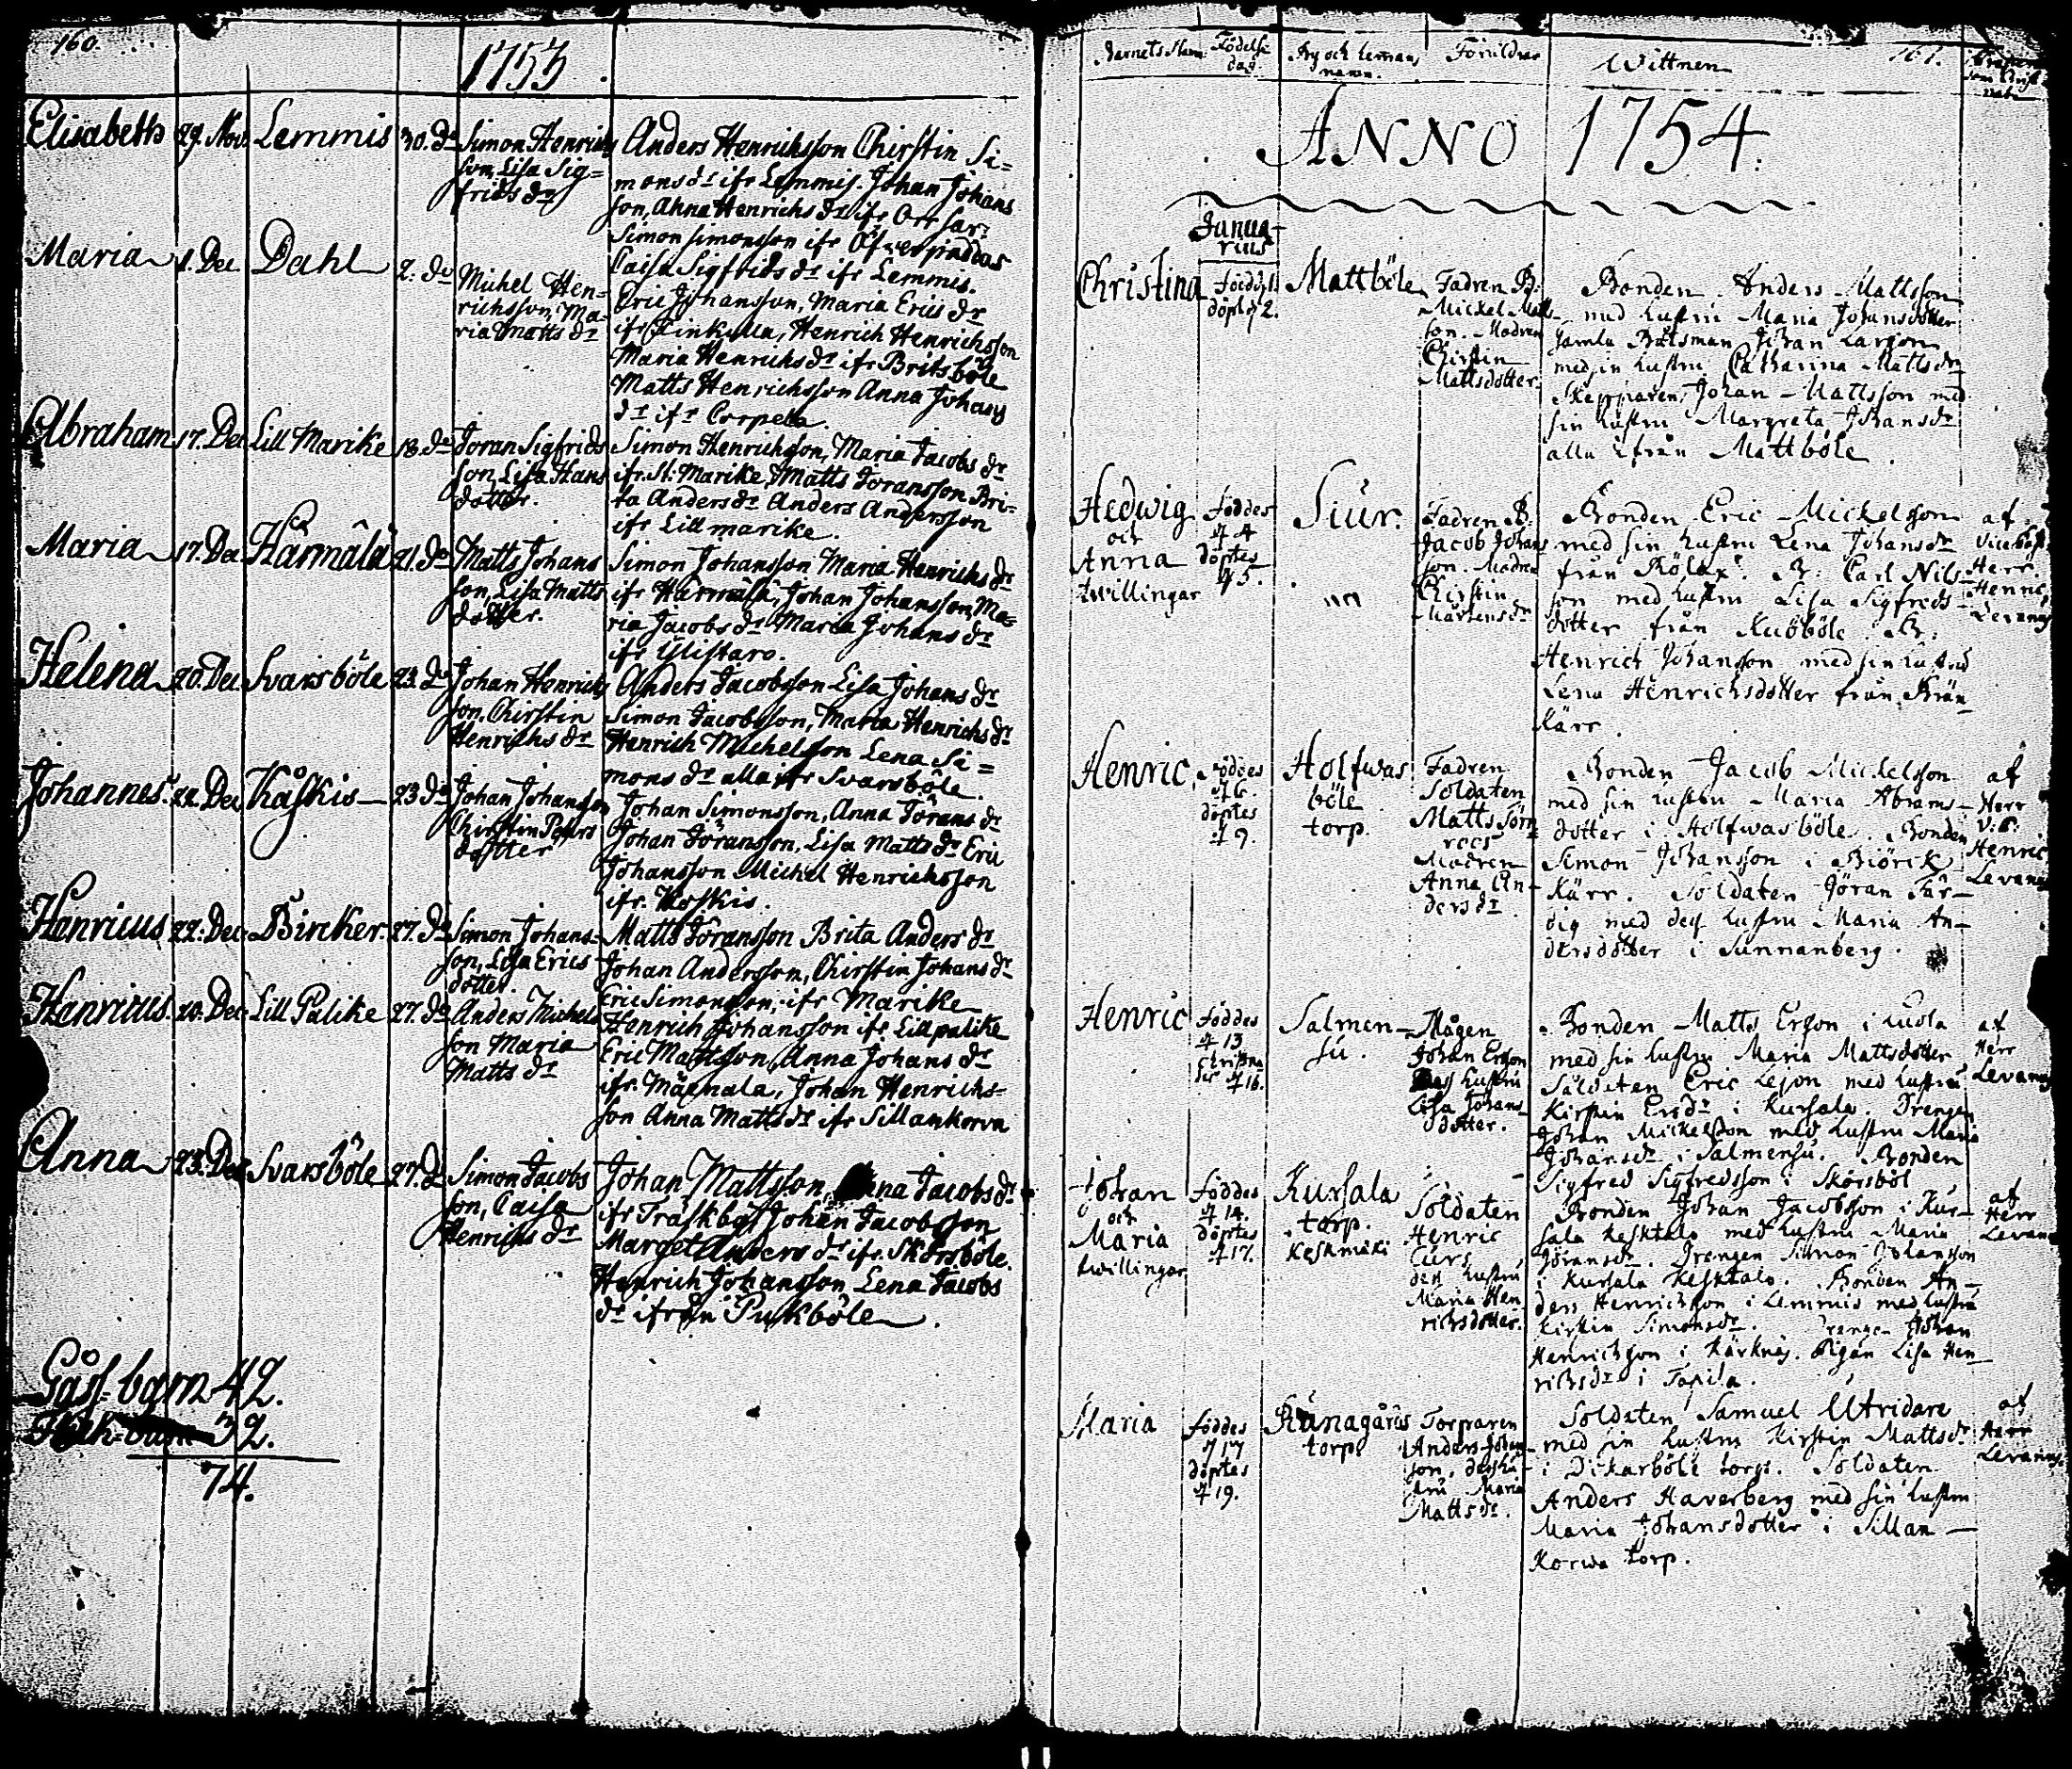 160.
1753
Elisabeth 29. Nov. Lemmis 30. do Simon Henrichs
son, Lisa Sig=
frids dr
Anders Henrichsson Chirstin Si=
mons dr ifr Lemmis. Johan Johans
son, Anna Henrichs dr ifr
Simon Simonsson ifr
Caisa Sigfrids dr ifr Lemmis.
Maria 1. Dec. Dahl 2. do Michel Hen=
richsson, Ma=
ria Matts dr
Eric Johansson, Maria Erics dr
ifr Finkulla, Henrich Henrichsson
Maria Henrichs dr ifr Britsböle
Matts Henrichsson Anna Johans
dr ifr Corpela.
Abraham 17. Dec Lill Marike 18. do Joran Sigfrids
son, Lisa Hans
dotter.
Simon Henrichsson, Maria Jacobs dr
ifr St: Marike, Matts Joransson Bri-
ta Anders dr Anders Andersson
ifr Lill marike.
Maria 17. Dec Härmälä 21. do Matts Johans
son, Lisa Matts
dotter.
Simon Johansson Maria Henrichs dr
ifr Härmälä, Johan Johansson, Ma=
ria Jacobs dr Maria Johans dr
ifr Ylistaro.
Helena 20. Dec Svarsböle 23. do Johan Henrichs
son, Chirstin
Henrichs dr
Anders Jacobsson Lisa Johans dr
Simon Jacobsson, Maria Henrichs dr
Henrich Michelsson Lena Si=
mons dr alla ifr Svarsböle.
Johannes. 22. Dec Kåskis 23 do Johan Johansson
Chirstin Pehrs
dotter
Johan Simonsson, Anna Jörans dr
Johan Jöransson, Lisa Matts dr Eric
Johansson Michel Henrichsson
ifr. Koskis.
Henricus 22. Dec. Bircker. 27. do Simon Johans=
son, Lisa Erics
dotter.
Matts Jöransson Brita Anders dr
Johan Andersson, Chirstin Johans dr
Eric Simonsson, ifr Marike
Henricus. 20. Dec. Lill Palike 27. do Anders Michels
son Maria
Matts dr
Henrich Johansson ifr Lill palike
Eric Mattsson, Anna Johans dr
ifr. Märnala, Johan Henrichs=
son Anna Matts dr ifr Sillankorva
Anna 23. Dec Svarsböle 27. do Simon Jacobs
son, Caisa
Henrichs dr
Johan Mattsson, Anna Jacobs dr
ifr Träskby, Johan Jacobsson
Marget Anders dr ifr. Skörsböle.
Henrich Johansson Lena Jacobs
dr ifrån Pukböle.
Gåss-barn 42.
32.
74.
Barnets Namn Födelse
dag. By och hemans
namn. Föräldrar Wittnen 161.
ANNO 1754.
Janua-
rius
Christina Föddes 1.
döptes 2. Mattböle Fadren B:
Mickel Matts-
son. Modren
Chirstin
Mattsdotter.
Bonden Anders Mattsson
med hustru Maria Johansdotter
gamla Båtsman Johan Larson
med sin hustru Catharina Mattsdr
Skepparen Johan Mattsson med
sin hustru Margreta Johansdr
alla ifrån Mattböle.
Hedwig
och
Anna
twillingar
föddes
d 4
döptes
d 5.
Siur.
Fadren B:
Jacob Johans
son. Modren
Chirstin
Mårtensdr
Bonden Eric Mickelson
med sin hustru Lena Johansdr
från Bölax. B: Carl Nils-
son med hustru Lisa Sigfreds-
dotter från Kuoböle. B:
Henrich Johansson med sin hustru
Lena Henrichsdotter från Brän
kärr.
af
Herr
Henric
Levanus
Henric, föddes
d 6.
döptes
d 9.
Holfwas
böle
torp.
Fadren
Soldaten
Matts
Modren
Anna An-
dersdr
Bonden Jacob Mickelsson
med sin hustru Maria Abrams-
dotter i Holfwasböle. Bonden
Simon Johansson i Biörck
kärr. Soldaten Göran Fär-
dig med dess hustru Maria An-
dersdotter i Sunnanberg.
af
Herr
V. P.
Henric
Levanus
Henric föddes
d 13
Christna
des d 16.
Salmen-
su.
Mågen
Johan Erson
Dess hustru
Lisa Johans-
dotter.
Bonden Matts Erson i
med sin hustru Maria Mattsdotter
Soldaten Eric Lejon med hustru
Kirstin Ersdr i Kursala. Drengen
Johan Mickelson med hustru Maria
Johansdr i Salmensu. Bonden
Sigfred Sigfredsson i Skörsböl
af
Herr
Levanus
Johan
och
Maria
twillingar
föddes
d 14.
döptes
d 17.
Kursala
torp.
Keskmäki
Soldaten
Henric
dess hustru
Maria Hen
richsdotter.
Bonden Johan Jacobsson i Kur-
sala Kesktalo med hustru Maria
Göransdr. Drengen Simon Johansson
i Kursala Kesktalo. Bonden An-
ders Henrichson i Lemmis med hustru
Kirstin Simonsdr. Drengen Johan
Henrichson i Kärknäs. Pigan Lisa Hen
richsdr i Tapila.
af
Herr
Levanus
Maria föddes
d 17
döptes
d 19.
Runagårds
torp.
Torparen
Anders Johan-
son, dess hu-
stru Maria
Mattsdr.
Soldaten Samuel Utridare
med sin hustru Kirstin Mattsdr
i Dickarböle torp. Soldaten
Anders Haverberg med sin hustru
Maria Johansdotter i Sillan-
korwa torp.
af
Herr
Levanus.